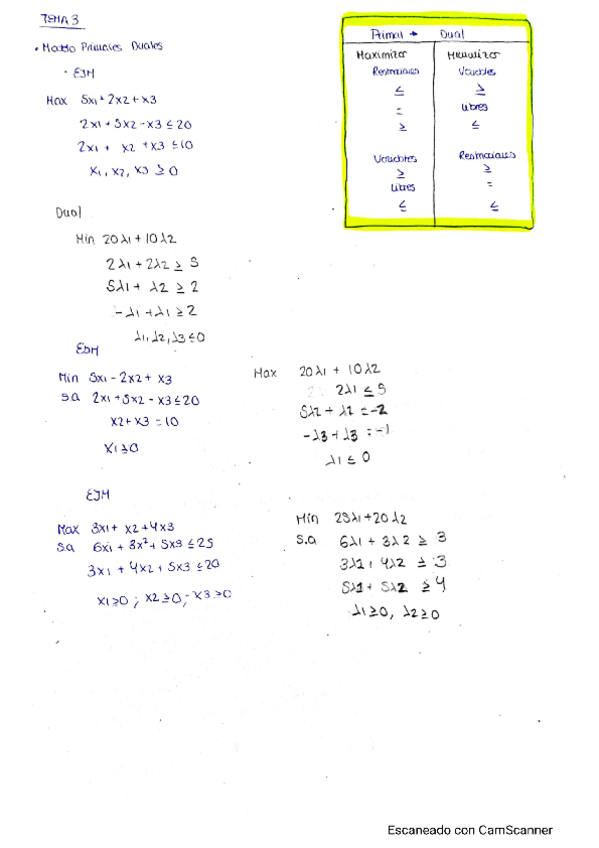 TEMA 3
• Modelo Primales Duales
• EJM
Max 5x1+2x2+x3
2x1+5x2-x3≤20
2x1+ x2 +x3≤10
x1, x2, x3 ≥0
Primal → Dual
Maximizar Minimizar
Restricciones Variables
≤ ≥
= Libres
≥ ≤
Variables Restricciones
≥ ≥
Libres =
≤ ≤
Dual
Min 20λ1+10λ2
2λ1+2λ2 ≥ 5
5λ1+ λ2 ≥ 2
-λ1+λ1≥2
λ1,λ2,λ3≤0
EJM
Min 5x1-2x2+ x3
s.a 2x1+5x2-x3≤20
x2+x3 =10
x1≥0
Max 20λ1 + 10λ2
2λ1 ≤ 5
5λ2 + λ2 =-2
-λ3+λ3 =-1
λ1 ≤ 0
EJM
Max 3x1+ x2+4x3
s.a 6x1+3x2+5x3≤25
3x1+4x2+5x3≤20
x1≥0 ; x2≥0; x3≥0
Min 25λ1+20λ2
s.a 6λ1+3λ2 ≥ 3
3λ1+4λ2 ≥ 3
5λ1+ 5λ2 ≥4
λ1≥0, λ2≥0
Escaneado con CamScanner